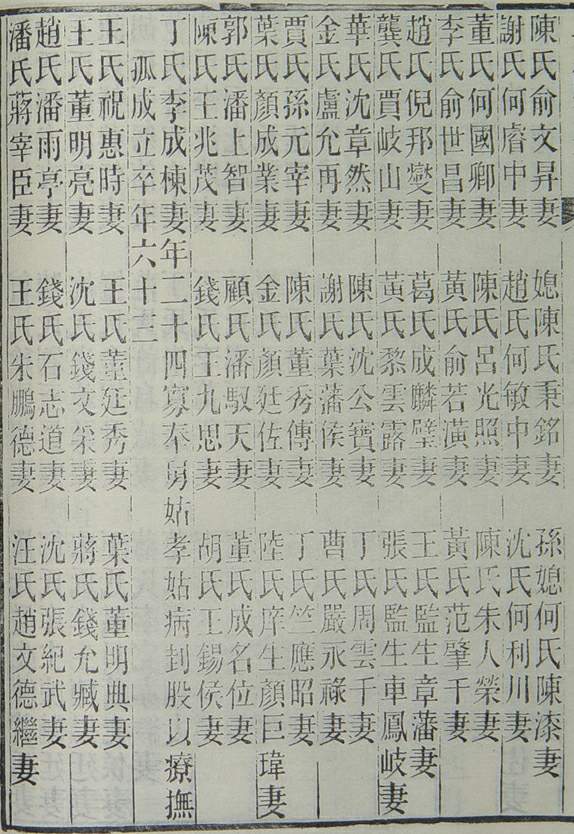 陳氏俞文昇妻　媳陳氏秉銘妻　孫媳何氏陳漆妻
謝氏何睿中妻　趙氏何敏中妻　沈氏何利川妻
董氏何國卿妻　陳氏呂光照妻　陳氏朱人榮妻
李氏俞世昌妻　黃氏俞若潢妻　黃氏范肇千妻
趙氏倪邦燮妻　葛氏成麟璧妻　王氏監生章藩妻
龔氏賈岐山妻　黃氏黎雲露妻　張氏監生車鳳岐妻
華氏沈章然妻　陳氏沈公賓妻　丁氏周雲千妻
金氏盧允再妻　謝氏葉藩侯妻　曹氏嚴永祿妻
賈氏孫元宰妻　陳氏董秀傳妻　丁氏竺應昭妻
葉氏顏成業妻　金氏顏廷佐妻　陸氏庠生顏巨瑋妻
郭氏潘上智妻　顧氏潘馭天妻　董氏成名位妻
陳氏王兆茂妻　錢氏王九思妻　胡氏王錫侯妻
丁氏李成棟妻年二十四寡奉舅姑孝姑病刲股以療撫
孤成立卒年六十三
王氏祝惠時妻　王氏董廷秀妻　葉氏董明典妻
王氏董明亮妻　沈氏錢文采妻　蔣氏錢允臧妻
趙氏潘雨亭妻　錢氏石志道妻　沈氏張紀武妻
潘氏蔣宰臣妻　王氏朱鵬德妻　汪氏趙文德繼妻